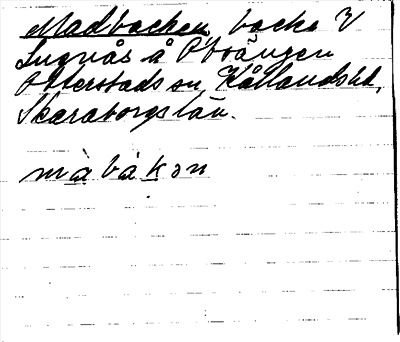 Madbacken backe V
Lugnås å P Storängen
Otterstads sn, Kållands hd,
Skaraborgs län.
màbàkən